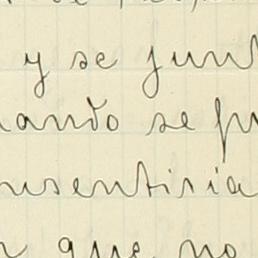 y se junt
ando se fu
nsentiria
que no